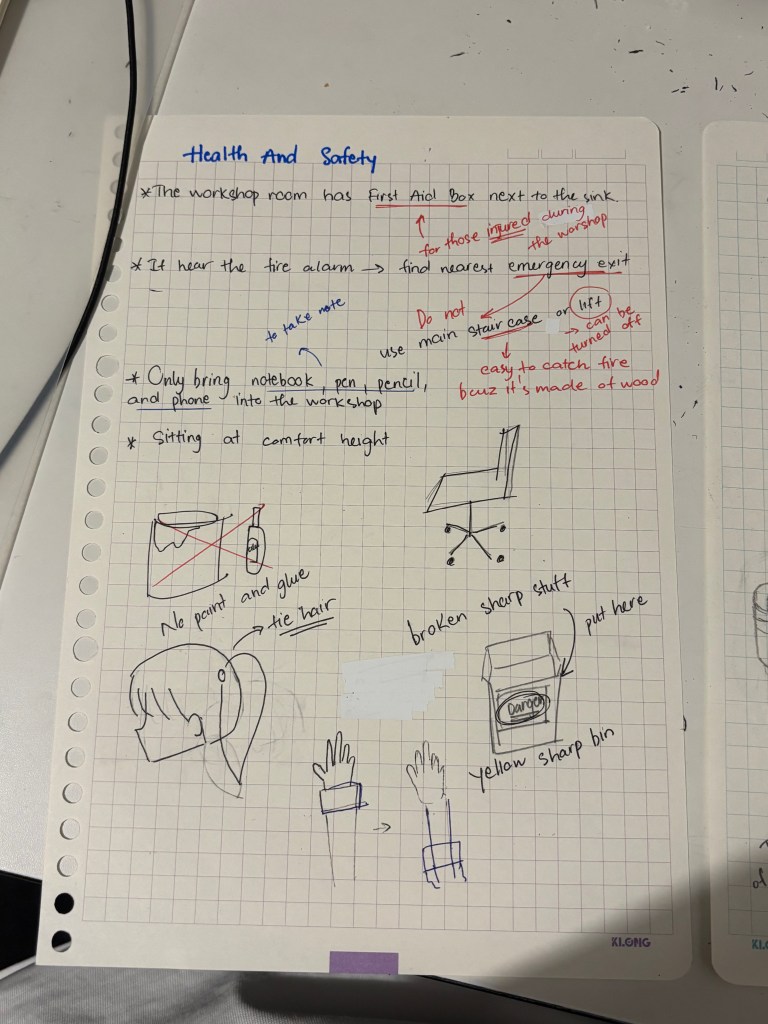 Health And Safety
* The workshop room has First Aid Box next to the sink.
for those injured during
the worshop
* If hear the fire alarm → find nearest emergency exit
Do not
use main staircase or lift
→ can be
turned off
easy to catch fire
bcuz it's made of wood
to take note
* Only bring notebook, pen, pencil,
and phone into the workshop
* Sitting at comfort height
No paint and glue
→ tie hair
broken sharp stuff
put here
Danger
yellow sharp bin
→
KLONG